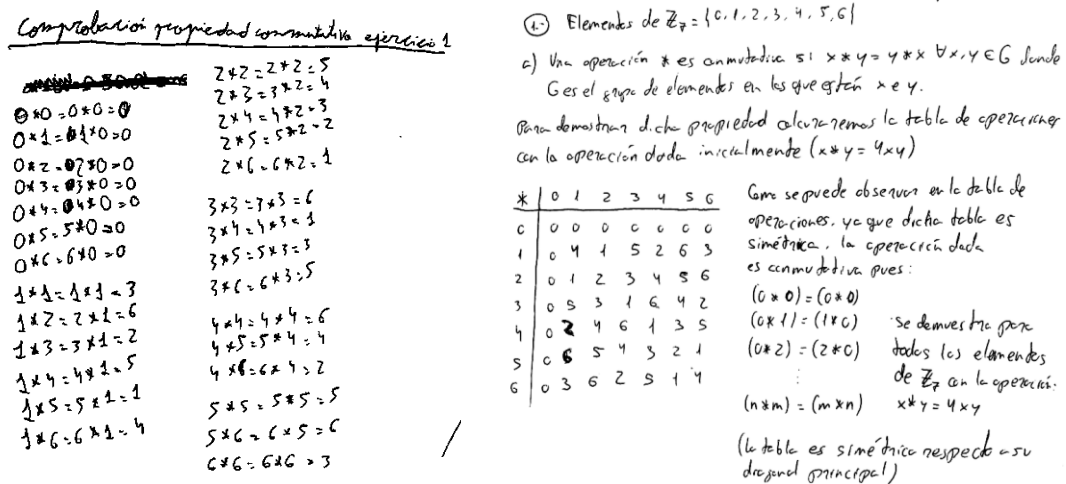 Comprobación propiedad conmutativa ejercicio 1
0*0=0*0=0
0*1=1*0=0
0*2=2*0=0
0*3=3*0=0
0*4=4*0=0
0*5=5*0=0
0*6=6*0=0
1*1=1*1=3
1*2=2*1=6
1*3=3*1=2
1*4=4*1=5
1*5=5*1=1
1*6=6*1=4
2*2=2*2=5
2*3=3*2=4
2*4=4*2=3
2*5=5*2=2
2*6=6*2=1
3*3=3*3=6
3*4=4*3=1
3*5=5*3=3
3*6=6*3=5
4*4=4*4=6
4*5=5*4=4
4*6=6*4=2
5*5=5*5=5
5*6=6*5=6
6*6=6*6=3
1.- Elementos de Z₇={0,1,2,3,4,5,6}
a) Una operación * es conmutativa si x*y=y*x ∀x,y∈G donde
G es el grupo de elementos en los que están x e y.
Para demostrar dicha propiedad calcularemos la tabla de operaciones
con la operación dada inicialmente (x*y=4xy)
* | 0 1 2 3 4 5 6
0 | 0 0 0 0 0 0 0
1 | 0 4 1 5 2 6 3
2 | 0 1 2 3 4 5 6
3 | 0 5 3 1 6 4 2
4 | 0 2 4 6 1 3 5
5 | 0 6 5 4 3 2 1
6 | 0 3 6 2 5 1 4
Como se puede observar en la tabla de
operaciones, ya que dicha tabla es
simétrica, la operación dada
es conmutativa pues:
(0*0)=(0*0)
(0*1)=(1*0)
(0*2)=(2*0)
⋮
(n*m)=(m*n)
se demuestra para
todos los elementos
de Z₇ con la operación:
x*y=4xy
(la tabla es simétrica respecto a su
diagonal principal)